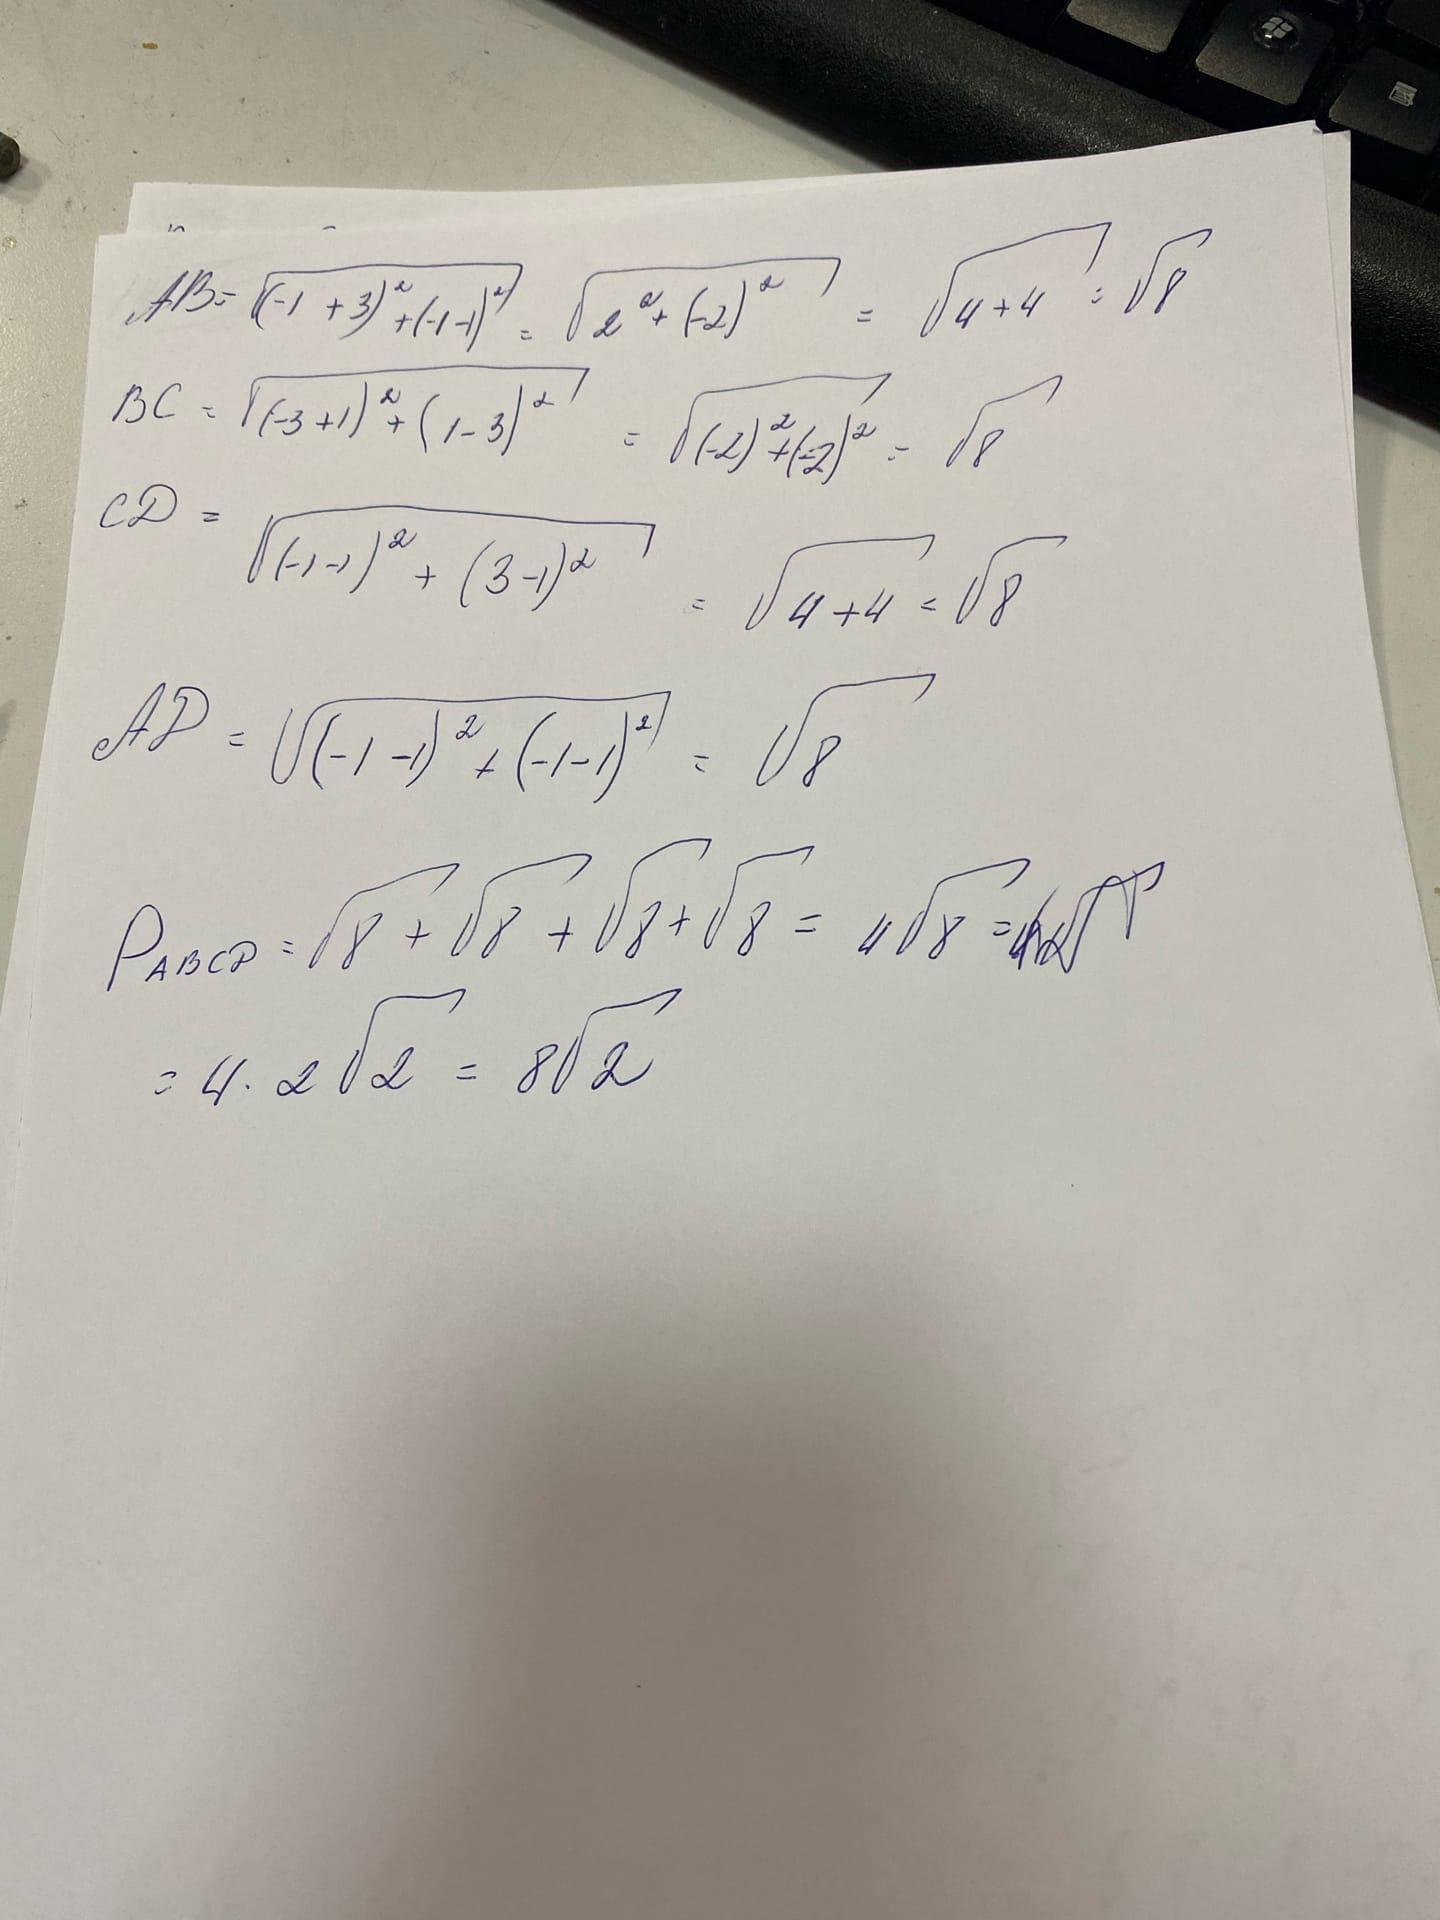 AB = √((-1+3)² + (-1-1)²) = √(2² + (-2)²) = √(4+4) = √8
BC = √((-3+1)² + (1-3)²) = √((-2)² + (-2)²) = √8
CD = √((-1-1)² + (3-1)²) = √(4+4) = √8
AD = √((-1-1)² + (-1-1)²) = √8
P ABCD = √8 + √8 + √8 + √8 = 4√8 =
= 4 · 2√2 = 8√2